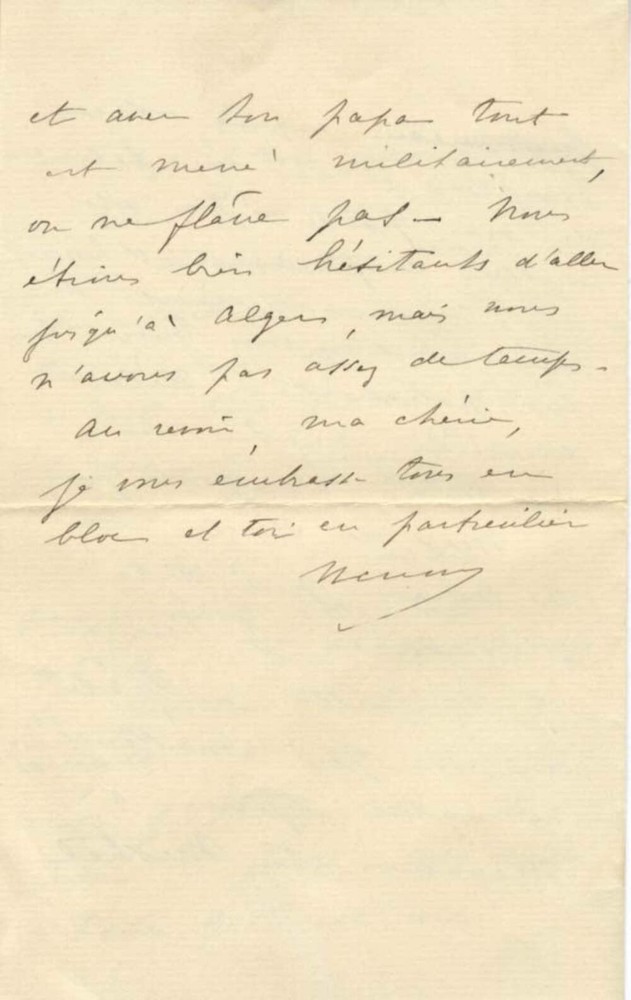 et avec ton papa tout
est mené militairement,
on ne flâne pas — Nous
étions bien hésitants d'aller
jusqu'à Alger, mais nous
n'avons pas assez de temps -
Au revoir, ma chérie,
je vous embrasse tous en
bloc et toi en particulier